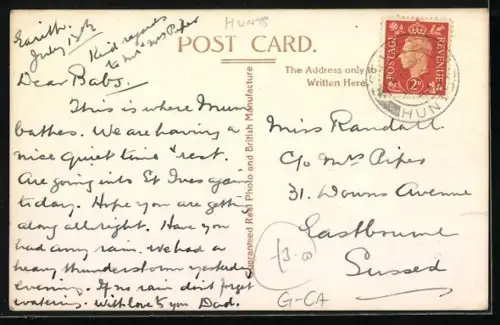 Earith.
July 13th
Kind regards
to Mr & Mrs Piper
HUNTS
POST CARD.
The Address only to be
Written Here.
POSTAGE
REVENUE
HUNTS
Guaranteed Real Photo and British Manufacture
Dear Babs,
This is where Mum
bathes. We are having a
nice quiet time & rest.
Are going into St Ives again
today. Hope you are getting
along allright. Have you
had any rain. We had a
heavy thunderstorm yesterday
evening. If no rain don't forget
watering. With love to you Dad.
Miss Randall
C/o Mrs Piper
31. Downs Avenue
Eastbourne
Sussex
£3.00
G-CA